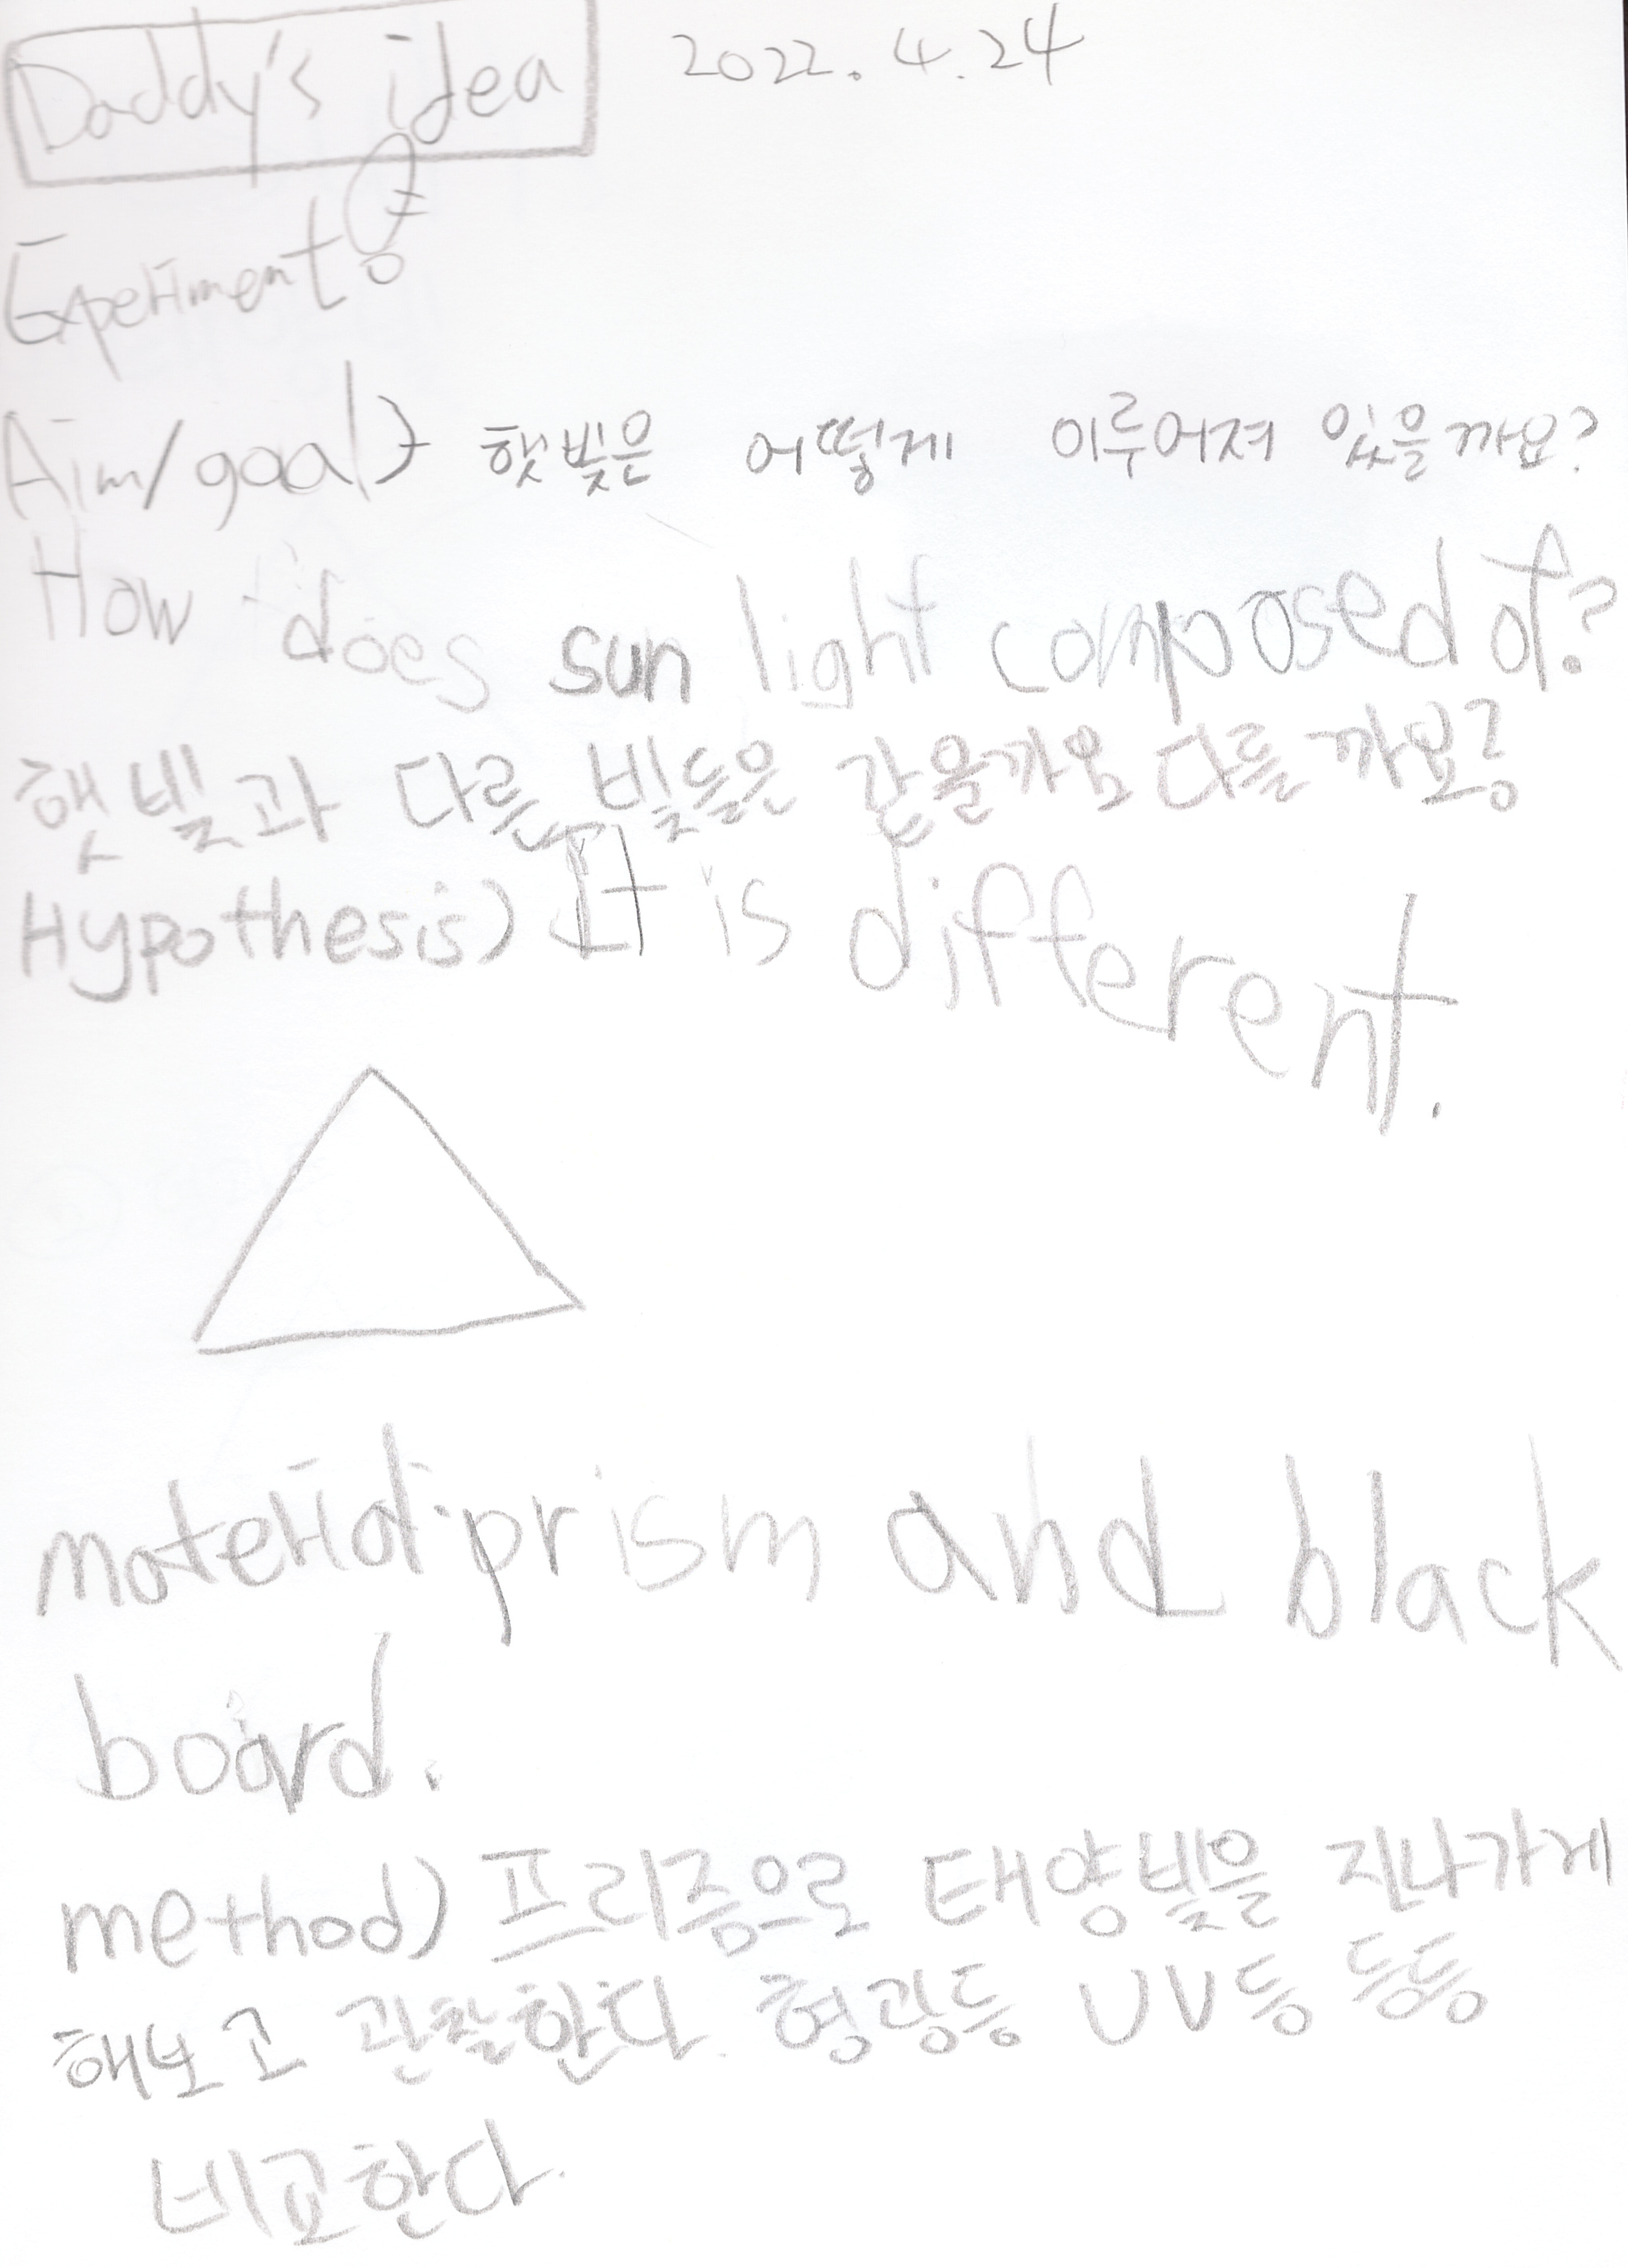 Daddy's idea 2022.4.24
Experiment
Aim/goal) 햇빛은 어떻게 이루어져 있을까요?
How does sun light composed of?
햇빛과 다른 빛들은 같을까요 다를까요?
Hypothesis) It is different.
material: prism and black
board.
method) 프리즘으로 태양빛을 지나가게
해보고 관찰한다. 형광등 UV등 등등
비교한다.